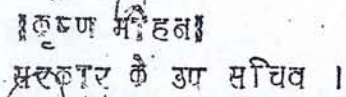 ॥कृष्ण मोहन॥
सरकार के उप सचिव ।